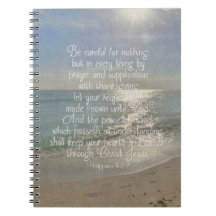 Be careful for nothing;
but in every thing by
prayer and supplication
with thanksgiving
let your requests be
made known unto God.
And the peace of God,
which passeth all understanding,
shall keep your hearts and minds
through Christ Jesus.
Philippians 4:6-7